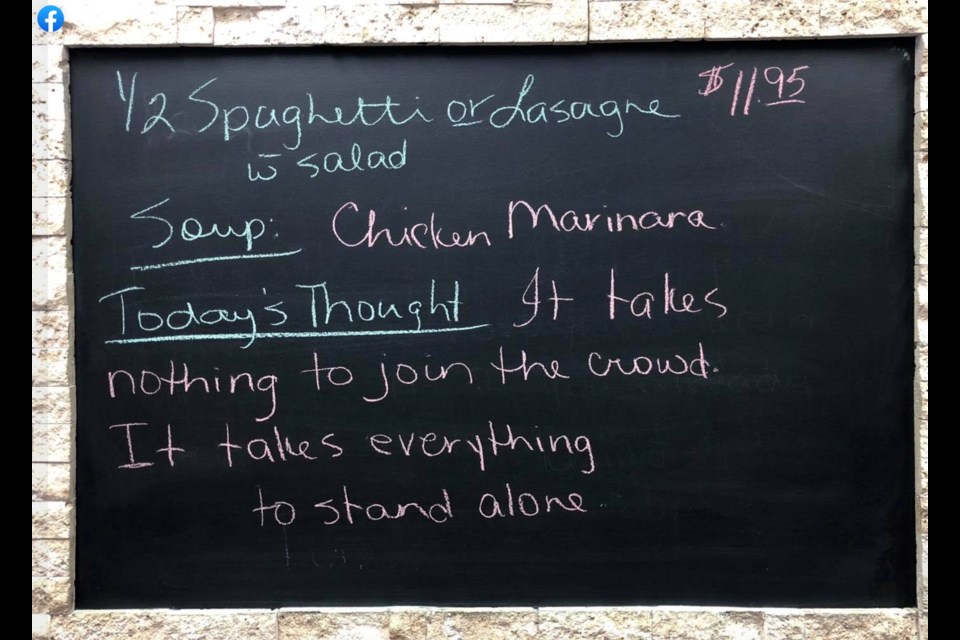 1/2 Spaghetti or Lasagne $11.95
w̄ salad
Soup: Chicken Marinara
Today's Thought It takes
nothing to join the crowd.
It takes everything
to stand alone.